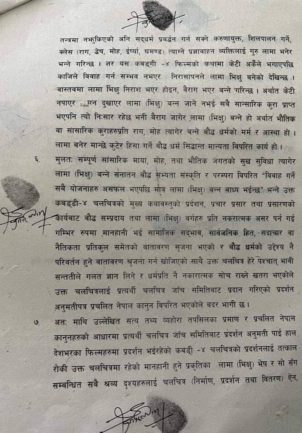 तन्त्रमा नभकिएको अनि सद्धर्म प्रवर्द्धन गर्न सक्ने करुणायुक्त, शिलपालन गर्ने,
क्लेस (राग, द्वेष, मोह, ईर्ष्या, घमण्ड) त्याग्ने प्रज्ञावाहन व्यक्तिलाई गुरु लामा भनेर
भन्ने गरिन्छ । तर यस कबड्डी -४ फिल्मको कथामा केटी अर्कैले भगाएपछि
काजीले विवाह गर्न सम्भव नभएर निराशापनले लामा (भिक्षु) बनेको देखिन्छ ।
वास्तवमा लामा (भिक्षु) निराश भएर होइन, वैराग भएर बन्ने गरिन्छ । अर्थात केटी
नपाएर मन दुखाएर लामा (भिक्षु) बन्न जाने नभई सबै सांसारिक कुरा प्राप्त
भएपनि त्यो निःसार रहेछ भनी वैराग जागेर लामा (भिक्षु) बन्ने हो अर्थात भौतिक
वा सांसारिक कुराहरुप्रति राग, मोह त्यागेर बन्ने बौद्ध धर्मको मर्म र आस्था हो ।
लामा बनेर मान्छे कुटेर हिंसा गर्ने बौद्ध धर्म सिद्धान्त मान्यता विपरित कार्य हो ।
६. मुलतः सम्पूर्ण सांसारिक माया, मोह, तथा भौतिक जगतको सुख सुविधा त्यागेर
लामा (भिक्षु) बन्ने सनातन बौद्ध सुभ्यता संस्कृति र परम्परा विपरित "विवाह गर्ने
सबै योजनाहरु असफल भएपछि मात्र लामा (भिक्षु) बन्न बाध्य भईन्छ" भन्ने उक्त
कबड्डी-४ चलचित्रको मुख्य कथावस्तुको प्रदर्शन, प्रचार प्रसार तथा प्रसारणको
कार्यबाट बौद्ध सम्प्रदाय तथा लामा (भिक्षु) वर्गहरु प्रति नकरात्मक असर पर्न गई
गम्भिर रुपमा मानहानी भई सामाजिक सद्भाव, सार्वजनिक हित, सदाचार वा
नैतिकता प्रतिकुल समेतको वातावरण सृजना भएको र बौद्ध धर्मको उद्देश्य नै
परिवर्तन हुने वातावरण सृजना गर्न खोजिएको साथै उक्त चलचित्र हेरे पश्चात् भावी
सन्ततीले गलत ज्ञान लिने र धर्मप्रति नै नकारात्मक सोच राख्ने खतरा भएकोले
उक्त चलचित्रलाई प्रत्यर्थी चलचित्र जाँच समितिबाट प्रदान गरिएको प्रदर्शन
अनुमतीपत्र प्रचलित नेपाल कानुन विपरित भएकोले बदर भागी छ ।
७ अतः माथि उल्लेखित सत्य तथ्य व्यहोरा तपसिलका प्रमाण र प्रचलित नेपाल
कानुनहरुको आधारमा प्रत्यर्थी चलचित्र जाँच समितिबाट प्रदर्शन अनुमती पाई हाल
देशभरका फिल्महरुमा प्रदर्शन भईरहेको कबड्डी -४ चलचित्रको प्रदर्शनलाई तत्काल
रोकी उक्त चलचित्रमा रहेको मानहानी हुने प्रकृतिका लामा (भिक्षु) भेष र सो सँग
सम्बन्धित सबै श्रव्य दृश्यहरुलाई चलचित्र (निर्माण, प्रदर्शन तथा वितरण) ऐन,